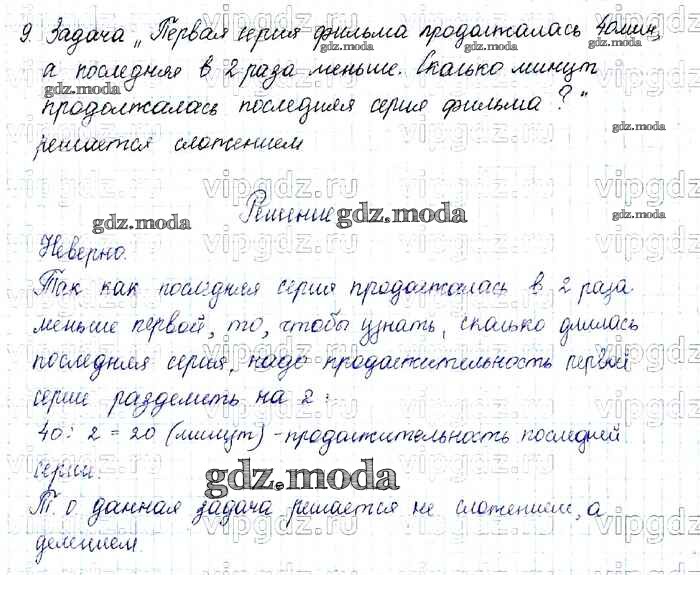 9. Задача „Первая серия фильма продолжалась 40 мин,
а последняя в 2 раза меньше. Сколько минут
продолжалась последняя серия фильма?"
решается сложением
Решение
Неверно.
Так как последняя серия продолжалась в 2 раза
меньше первой, то, чтобы узнать, сколько длилась
последняя серия, надо продолжительность первой
серии разделить на 2:
40 : 2 = 20 (минут) - продолжительность последней
серии.
Т. о данная задача решается не сложением, а
делением.
gdz.moda
gdz.moda
gdz.moda
gdz.moda
gdz.moda
gdz.moda
gdz.moda
gdz.moda
vipgdz.ru